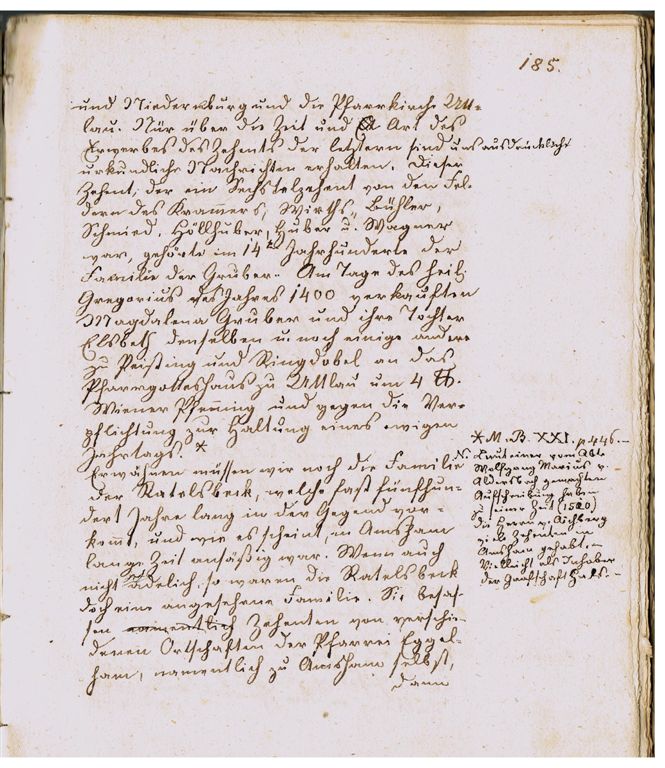 185.
und Niedernburg und die Pfarrkirche Utt-
lau. Nur über die Zeit und Art des
Erwerbes des Zehents der letztern sind uns ausdrückliche
urkundliche Nachrichten erhalten. Dieser
Zehent, der ein Sechstelzehent von den Fel-
dern des Krammers, Wirths, Bühler,
Schmied, Höllhuber, Huber u. Wagner
war, gehörte im 14ten Jahrhunderte der
Familie der Gruber. Am Tage des heil.
Gregorius des Jahres 1400 verkauften
Magdalena Gruber und ihre Tochter
Elsbeth denselben u. noch einige andere
zu Peisting und Ringdobel an das
Pfarrgotteshaus zu Uttlau um 4 ℔.
Wiener Pfenning und gegen die Ver-
pflichtung zur Haltung eines ewigen
Jahrtags. *
Erwähnen müssen wir noch die Familie
der Ratelsbeck, welche fast fünfhun-
dert Jahre lang in der Gegend vor-
kommt, und wie es scheint, in Amsham
lange Zeit ansäßig war. Wenn auch
nicht adelich, so waren die Ratelsbeck
doch eine angesehene Familie. Sie besas-
sen namentlich Zehenten von verschie-
denen Ortschaften der Pfarrei Eggel-
ham, namentlich zu Amsham selbst,
dann
* M. B. XXI. p 446.
Laut einer vom Abte
Wolfgang Marius v.
Aldersbach gemachten
Aufschreibung haben
zu seiner Zeit (1520)
die Herren v. Aichberg
viele Zehenten in
Amsham gehabt,
Vielleicht als Inhaber
der Grafschaft Hals.